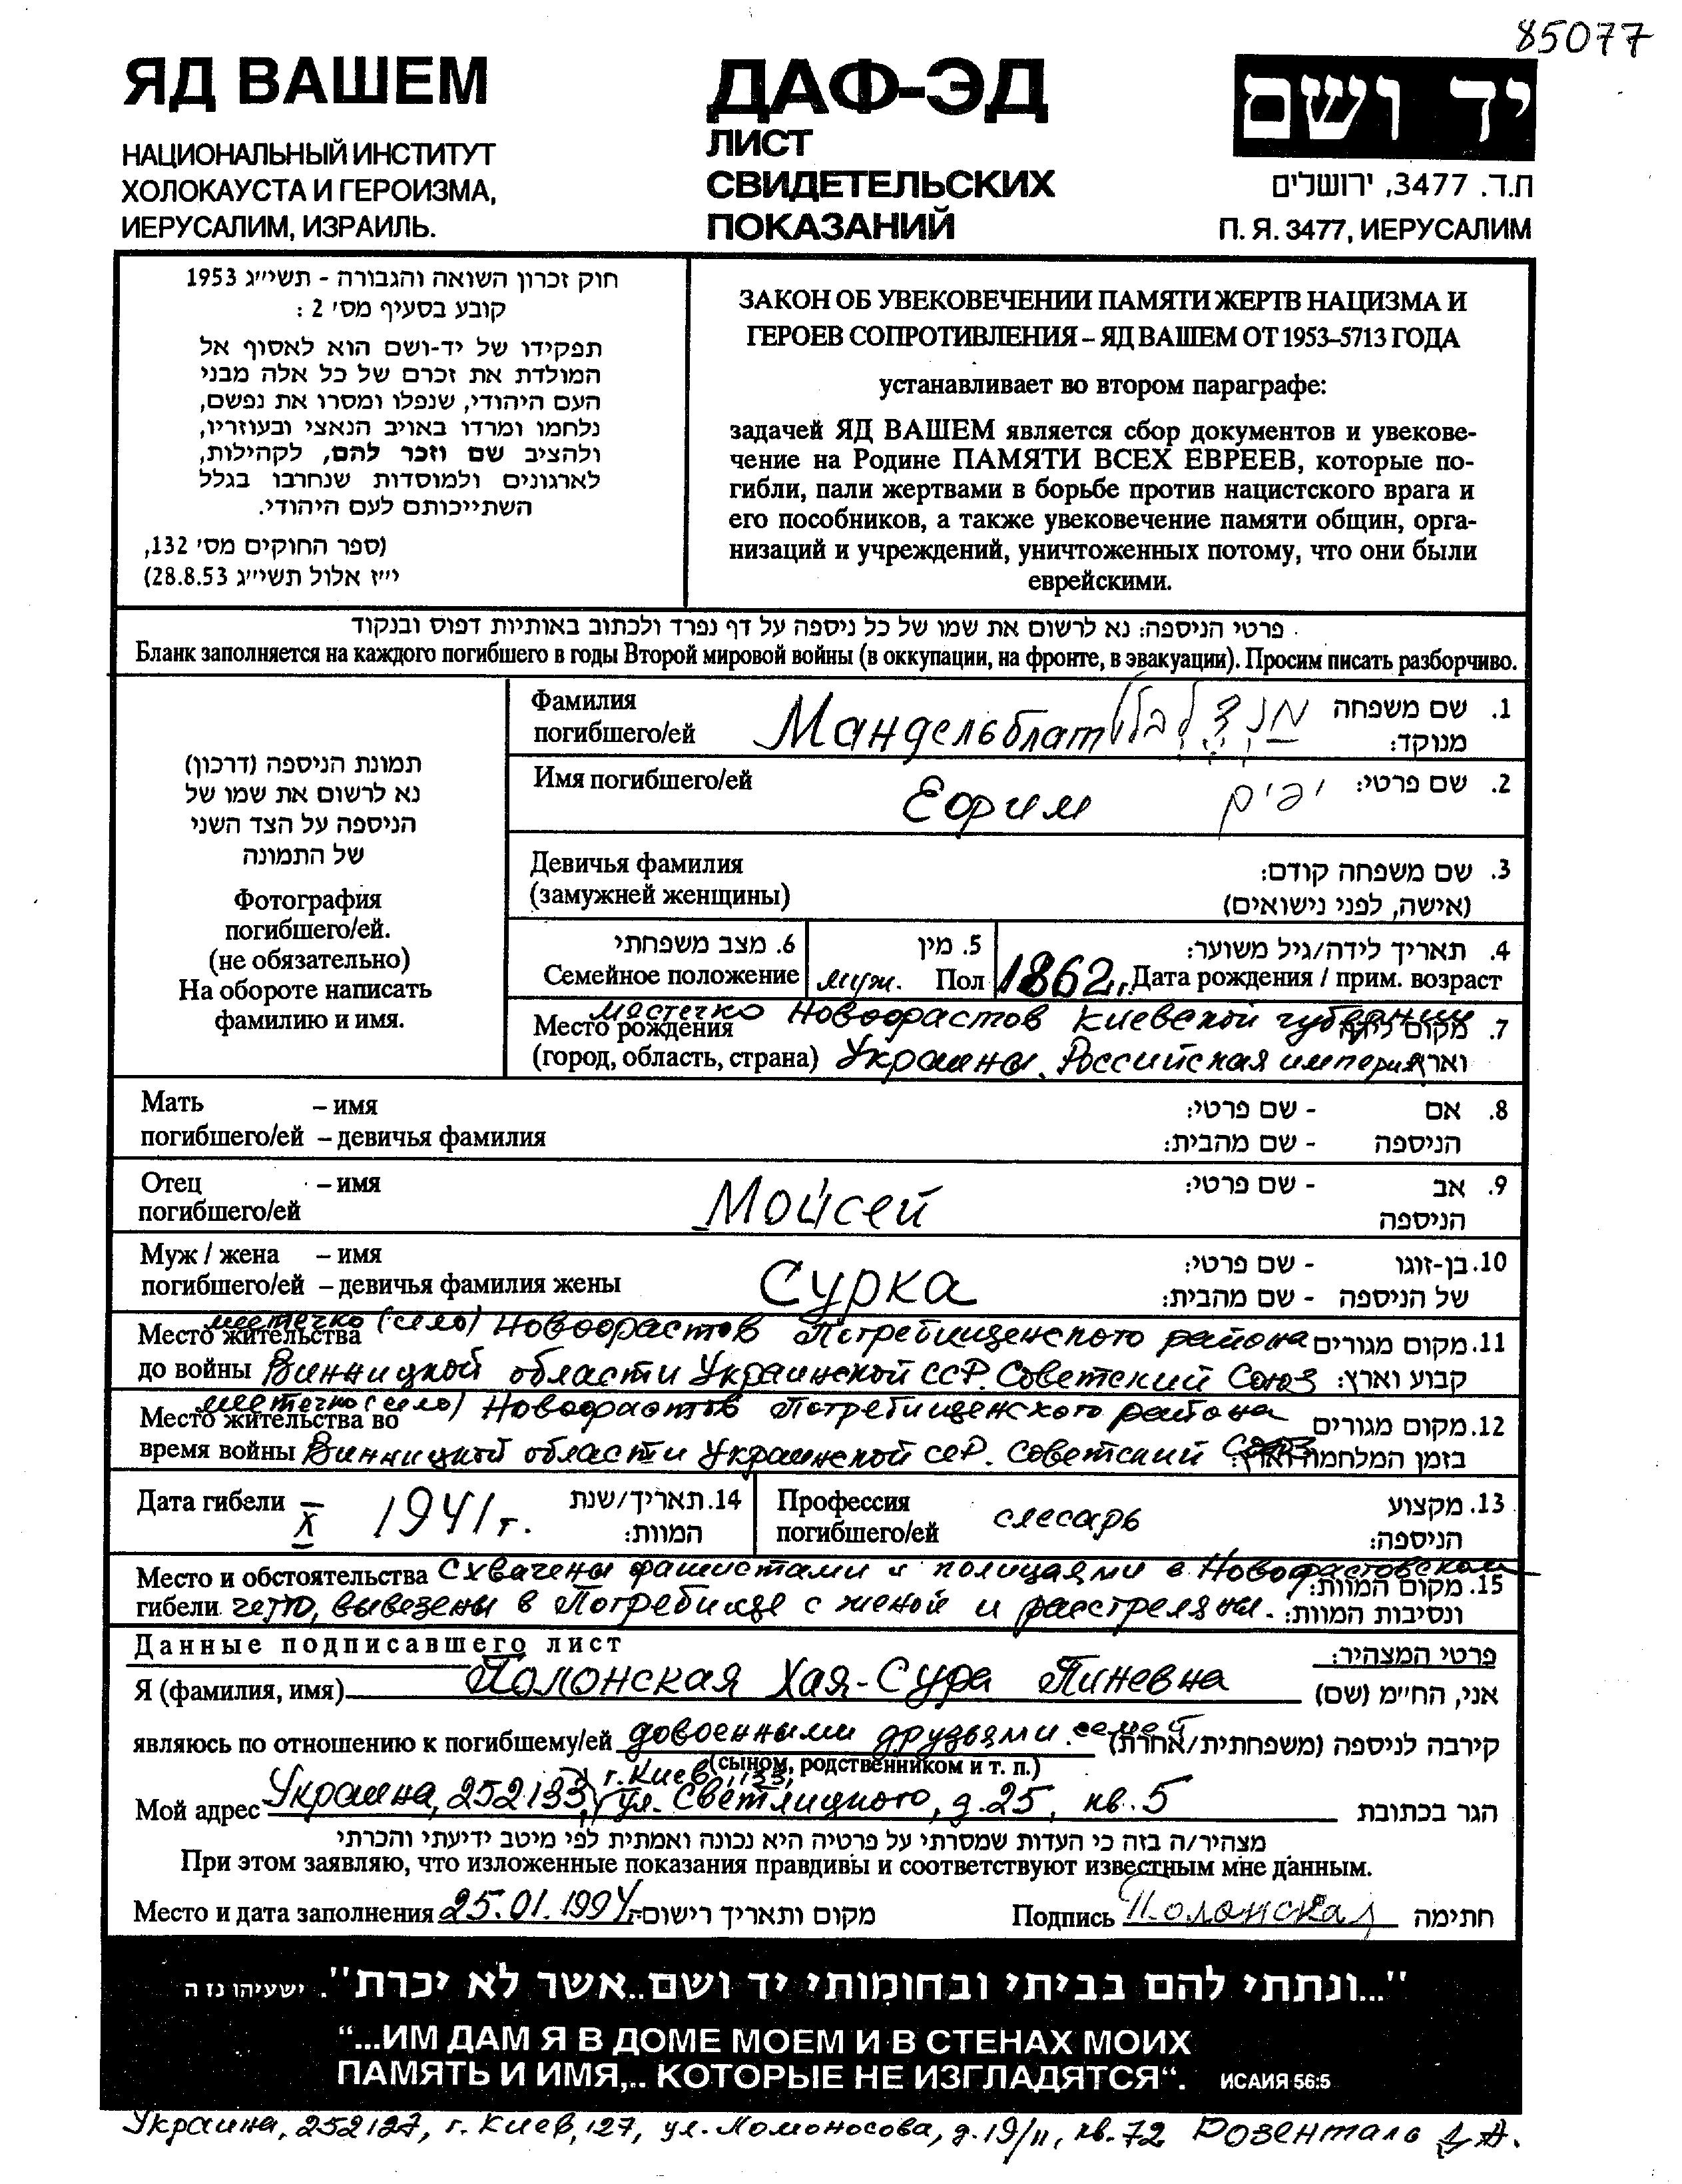 85077
ЯД ВАШЕМ
НАЦИОНАЛЬНЫЙ ИНСТИТУТ
ХОЛОКАУСТА И ГЕРОИЗМА,
ИЕРУСАЛИМ, ИЗРАИЛЬ.
ДАФ-ЭД
ЛИСТ
СВИДЕТЕЛЬСКИХ
ПОКАЗАНИЙ
יד ושם
ת.ד. 3477, ירושלים
П. Я. 3477, ИЕРУСАЛИМ
חוק זכרון השואה והגבורה - תשי״ג 1953
קובע בסעיף מס׳ 2 :
תפקידו של יד-ושם הוא לאסוף אל
המולדת את זכרם של כל אלה מבני
העם היהודי, שנפלו ומסרו את נפשם,
נלחמו ומרדו באויב הנאצי ובעוזריו,
ולהציב שם וזכר להם, לקהילות,
לארגונים ולמוסדות שנחרבו בגלל
השתייכותם לעם היהודי.
(ספר החוקים מס׳ 132,
י״ז אלול תשי״ג 28.8.53)
ЗАКОН ОБ УВЕКОВЕЧЕНИИ ПАМЯТИ ЖЕРТВ НАЦИЗМА И
ГЕРОЕВ СОПРОТИВЛЕНИЯ – ЯД ВАШЕМ ОТ 1953–5713 ГОДА
устанавливает во втором параграфе:
задачей ЯД ВАШЕМ является сбор документов и увекове-
чение на Родине ПАМЯТИ ВСЕХ ЕВРЕЕВ, которые по-
гибли, пали жертвами в борьбе против нацистского врага и
его пособников, а также увековечение памяти общин, орга-
низаций и учреждений, уничтоженных потому, что они были
еврейскими.
פרטי הניספה: נא לרשום את שמו של כל ניספה על דף נפרד ולכתוב באותיות דפוס ובנקוד
Бланк заполняется на каждого погибшего в годы Второй мировой войны (в оккупации, на фронте, в эвакуации). Просим писать разборчиво.
תמונת הניספה (דרכון)
נא לרשום את שמו של
הניספה על הצד השני
של התמונה
Фотография
погибшего/ей.
(не обязательно)
На обороте написать
фамилию и имя.
Фамилия 1. שם משפחה
погибшего/ей Мандельблат מנדלבלט מנוקד:
Имя погибшего/ей Ефрим יפים 2. שם פרטי:
Девичья фамилия 3. שם משפחה קודם:
(замужней женщины) (אישה, לפני נישואים)
6. מצב משפחתי 5. מין 4. תאריך לידה/גיל משוער:
Семейное положение муж. Пол 1862г. Дата рождения / прим. возраст
местечко Новофастов Киевской губернии
Место рождения 7. מקום לידה
(город, область, страна) Украины. Российская империя וארץ
Мать – имя 8. אם - שם פרטי:
погибшего/ей – девичья фамилия הניספה - שם מהבית:
Отец – имя Мойсей 9. אב - שם פרטי:
погибшего/ей הניספה
Муж / жена – имя Сурка 10. בן-זוגו - שם פרטי:
погибшего/ей – девичья фамилия жены של הניספה - שם מהבית:
местечко (село) Новофастов Погребищенского района
Место жительства 11. מקום מגורים
до войны Винницкой области Украинской ССР. Советский Союз קבוע וארץ:
местечко (село) Новофастов Погребищенского района
Место жительства во 12. מקום מגורים
время войны Винницкой области Украинской ССР. Советский Союз בזמן המלחמה וארץ:
Дата гибели X 1941г. 14. תאריך/שנת המוות:
Профессия
погибшего/ей слесарь 13. מקצוע הניספה:
Место и обстоятельства Схвачены фашистами и полицаями в Новофастовском 15. מקום המוות:
гибели гетто, вывезены в Погребище с женой и расстреляны. ונסיבות המוות:
Данные подписавшего лист פרטי המצהיר:
Я (фамилия, имя) Полонская Хая-Сура Пиневна אני, הח״מ (שם)
являюсь по отношению к погибшему/ей довоенными друзьями семей קירבה לניספה (משפחתית/אחרת)
(сыном, родственником и т. п.)
г. Киев, 133,
Мой адрес Украина, 252133, ул. Светлицкого, д. 25, кв. 5 הגר בכתובת
מצהיר/ה בזה כי העדות שמסרתי על פרטיה היא נכונה ואמתית לפי מיטב ידיעתי והכרתי
При этом заявляю, что изложенные показания правдивы и соответствуют известным мне данным.
Место и дата заполнения 25.01.1994г. מקום ותאריך רישום Подпись Полонская חתימה
"...ונתתי להם בביתי ובחומותי יד ושם..אשר לא יכרת". ישעיהו נז ה
“...ИМ ДАМ Я В ДОМЕ МОЕМ И В СТЕНАХ МОИХ
ПАМЯТЬ И ИМЯ,.. КОТОРЫЕ НЕ ИЗГЛАДЯТСЯ“. ИСАИЯ 56:5
Украина, 252127, г. Киев, 127, ул. Ломоносова, д. 19/11, кв. 72 Розенталь